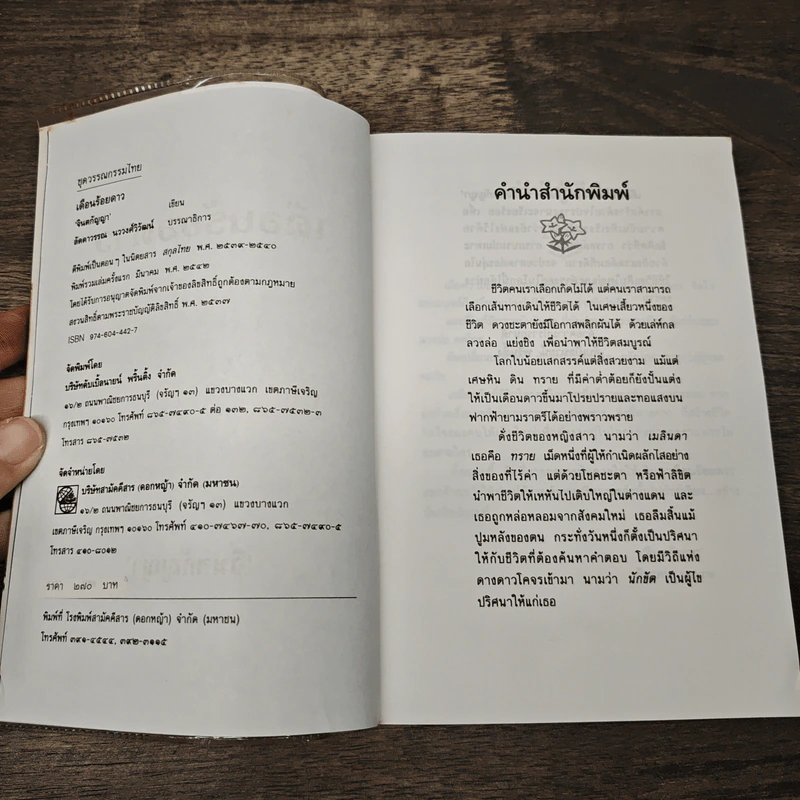 ชุดวรรณกรรมไทย
เดือนร้อยดาว
'จินตกัญญา' เขียน
ลัดดาวรรณ นววงศ์วิวัฒน์ บรรณาธิการ
ตีพิมพ์เป็นตอนๆ ในนิตยสาร สกุลไทย พ.ศ. ๒๕๓๙-๒๕๔๐
พิมพ์รวมเล่มครั้งแรก มีนาคม พ.ศ. ๒๕๔๒
โดยได้รับการอนุญาตจัดพิมพ์จากเจ้าของลิขสิทธิ์ถูกต้องตามกฎหมาย
สงวนสิทธิ์ตามพระราชบัญญัติลิขสิทธิ์ พ.ศ. ๒๕๓๗
ISBN 974-604-442-7
จัดพิมพ์โดย
บริษัทดับเบิ้ลนายน์ พริ้นติ้ง จำกัด
๑๖/๒ ถนนพาณิชยการธนบุรี (จรัญฯ ๑๓) แขวงบางแวก เขตภาษีเจริญ
กรุงเทพฯ ๑๐๑๖๐ โทรศัพท์ ๘๖๕-๗๔๙๐-๕ ต่อ ๑๓๒, ๘๖๕-๗๕๓๒-๓
โทรสาร ๘๖๕-๗๕๓๒
จัดจำหน่ายโดย
บริษัทสามัคคีสาร (ดอกหญ้า) จำกัด (มหาชน)
๑๖/๒ ถนนพาณิชยการธนบุรี (จรัญฯ ๑๓) แขวงบางแวก
เขตภาษีเจริญ กรุงเทพฯ ๑๐๑๖๐ โทรศัพท์ ๔๑๐-๗๔๖๗-๗๐, ๘๖๕-๗๔๙๐-๕
โทรสาร ๔๑๐-๘๐๑๒
ราคา ๒๗๐ บาท
พิมพ์ที่ โรงพิมพ์สามัคคีสาร (ดอกหญ้า) จำกัด (มหาชน)
โทรศัพท์ ๓๙๑-๔๕๔๔, ๓๙๒-๓๑๑๕
คำนำสำนักพิมพ์
ชีวิตคนเราเลือกเกิดไม่ได้ แต่คนเราสามารถ
เลือกเส้นทางเดินให้ชีวิตได้ ในเศษเสี้ยวหนึ่งของ
ชีวิต ดวงชะตายังมีโอกาสพลิกผันได้ ด้วยเล่ห์กล
ลวงล่อ แย่งชิง เพื่อนำพาให้ชีวิตสมบูรณ์
โลกใบน้อยเสกสรรค์แต่สิ่งสวยงาม แม้แต่
เศษหิน ดิน ทราย ที่มีค่าต่ำต้อยก็ยังปั้นแต่ง
ให้เป็นเดือนดาวขึ้นมาโปรยปรายและทอแสงบน
ฟากฟ้ายามราตรีได้อย่างพราวพราย
ดั่งชีวิตของหญิงสาว นามว่า เมลินดา
เธอคือ ทราย เม็ดหนึ่งที่ผู้ให้กำเนิดผลักไสอย่าง
สิ่งของที่ไร้ค่า แต่ด้วยโชคชะตา หรือฟ้าลิขิต
นำพาชีวิตให้เหหันไปเติบใหญ่ในต่างแดน และ
เธอถูกหล่อหลอมจากสังคมใหม่ เธอลืมสิ้นแม้
ปูมหลังของตน กระทั่งวันหนึ่งก็ตั้งเป็นปริศนา
ให้กับชีวิตที่ต้องค้นหาคำตอบ โดยมีวิถีแห่ง
ดางดาวโคจรเข้ามา นามว่า นักขัต เป็นผู้ไข
ปริศนาให้แก่เธอ